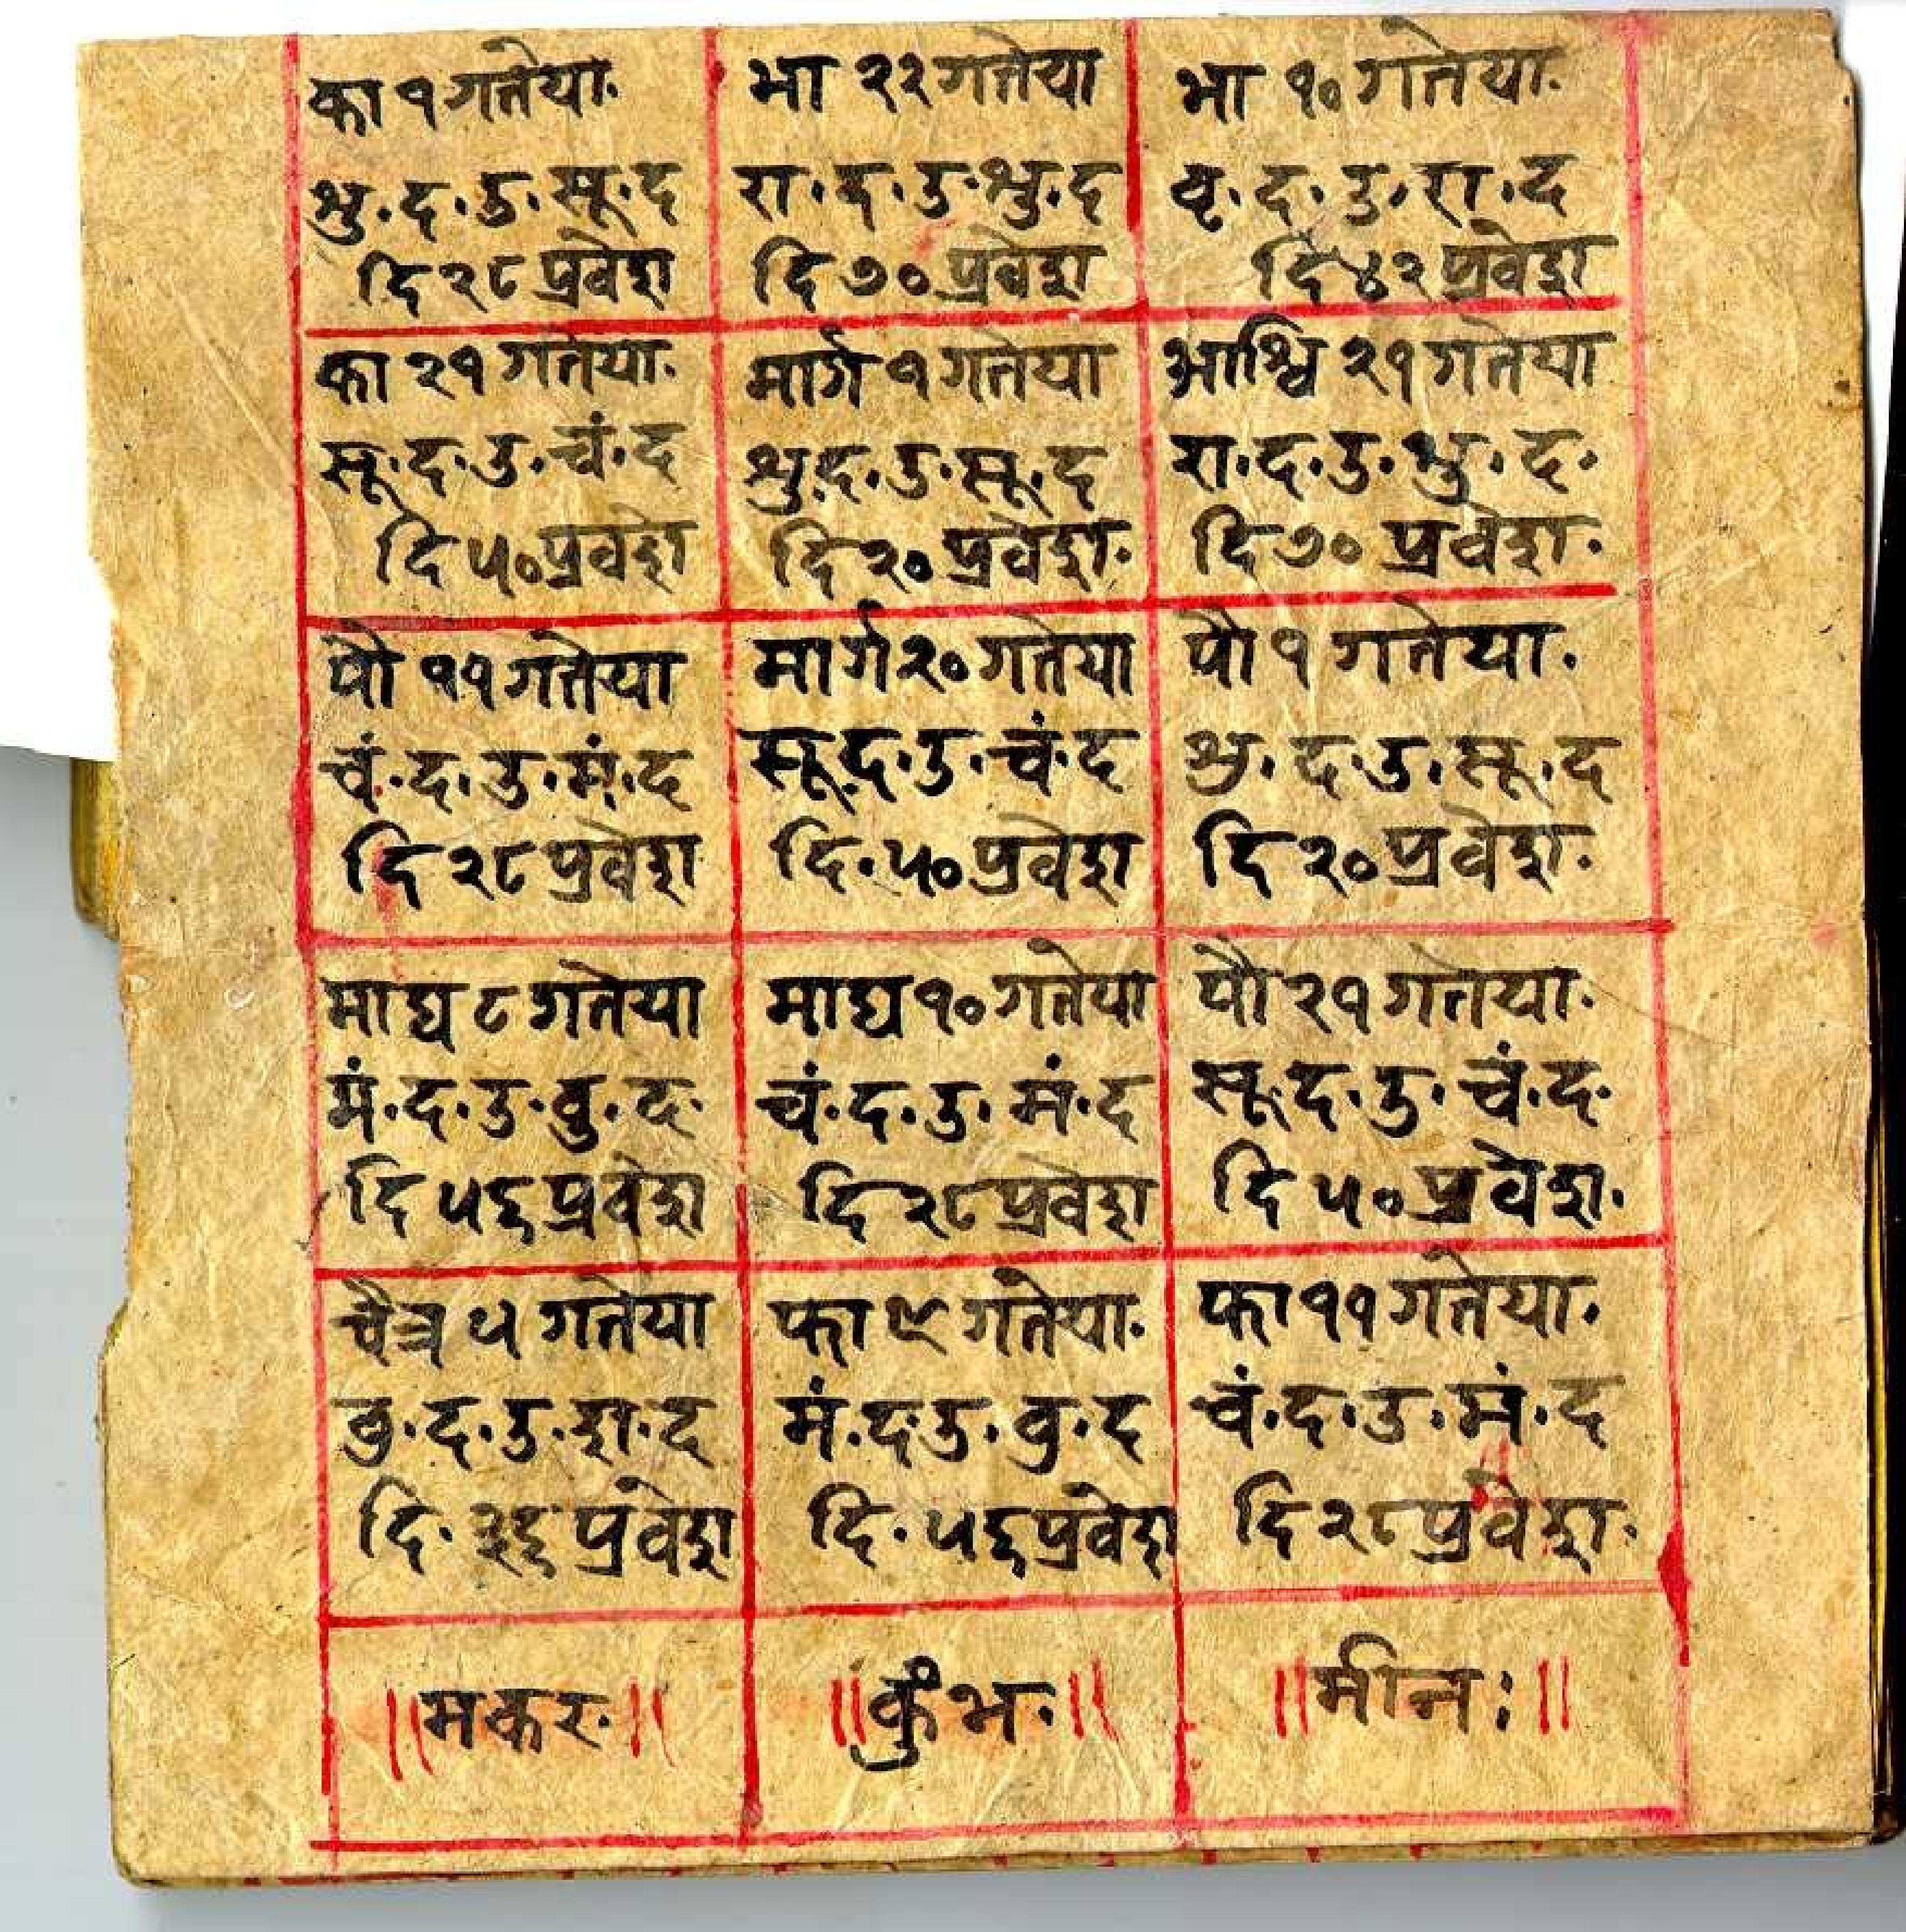 का १ गतेया.
शु.द.उ.सू.द
दि २८ प्रवेश
भा २२ गतेया
रा.द.उ.शु.द
दि ७० प्रवेश
भा १० गतेया.
बृ.द.उ.रा.द
दि ४२ प्रवेश
का २१ गतेया.
सू.द.उ.चं.द
दि ५० प्रवेश
मार्ग १ गतेया
शु.द.उ.सू.द
दि २० प्रवेश.
आश्वि २१ गतेया
रा.द.उ.शु.द.
दि ७० प्रवेश.
पौ ११ गतेया
चं.द.उ.मं.द
दि २८ प्रवेश
मार्ग २० गतेया
सू.द.उ.चं.द
दि.५० प्रवेश
पौ १ गतेया.
शु.द.उ.सू.द
दि २० प्रवेश.
माघ ८ गतेया
मं.द.उ.वु.द.
दि ५६ प्रवेश
माघ १० गतेया
चं.द.उ.मं.द
दि २८ प्रवेश
पौ २१ गतेया.
सू.द.उ.चं.द.
दि ५० प्रवेश.
चैत्र ५ गतेया
वु.द.उ.श.द
दि.३६ प्रवेश
फा ९ गतेया.
मं.द.उ.वु.द
दि.५६ प्रवेश
फा ११ गतेया.
चं.द.उ.मं.द
दि २८ प्रवेश.
॥मकर.॥
॥कुंभ.॥
॥मीनः॥